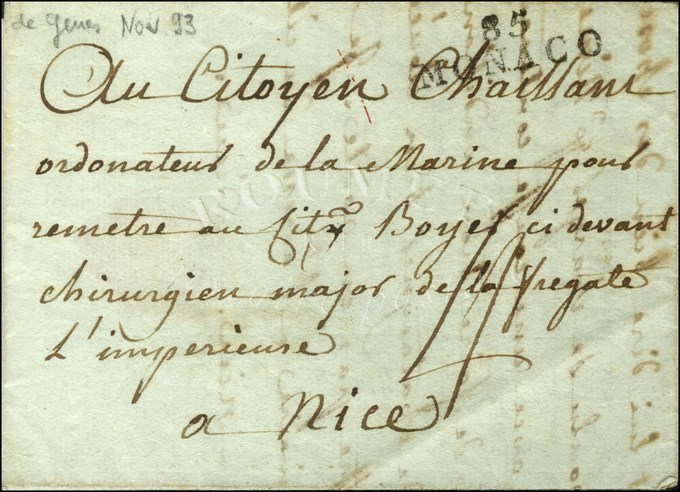 de Genes Nov 93
85
MONACO
Au Citoyen Chaillant
ordonateur de la Marine pour
remetre au Cit Boyer ci devant
chirurgien major de la fregate
L'imperieuse
a Nice
ROUMET